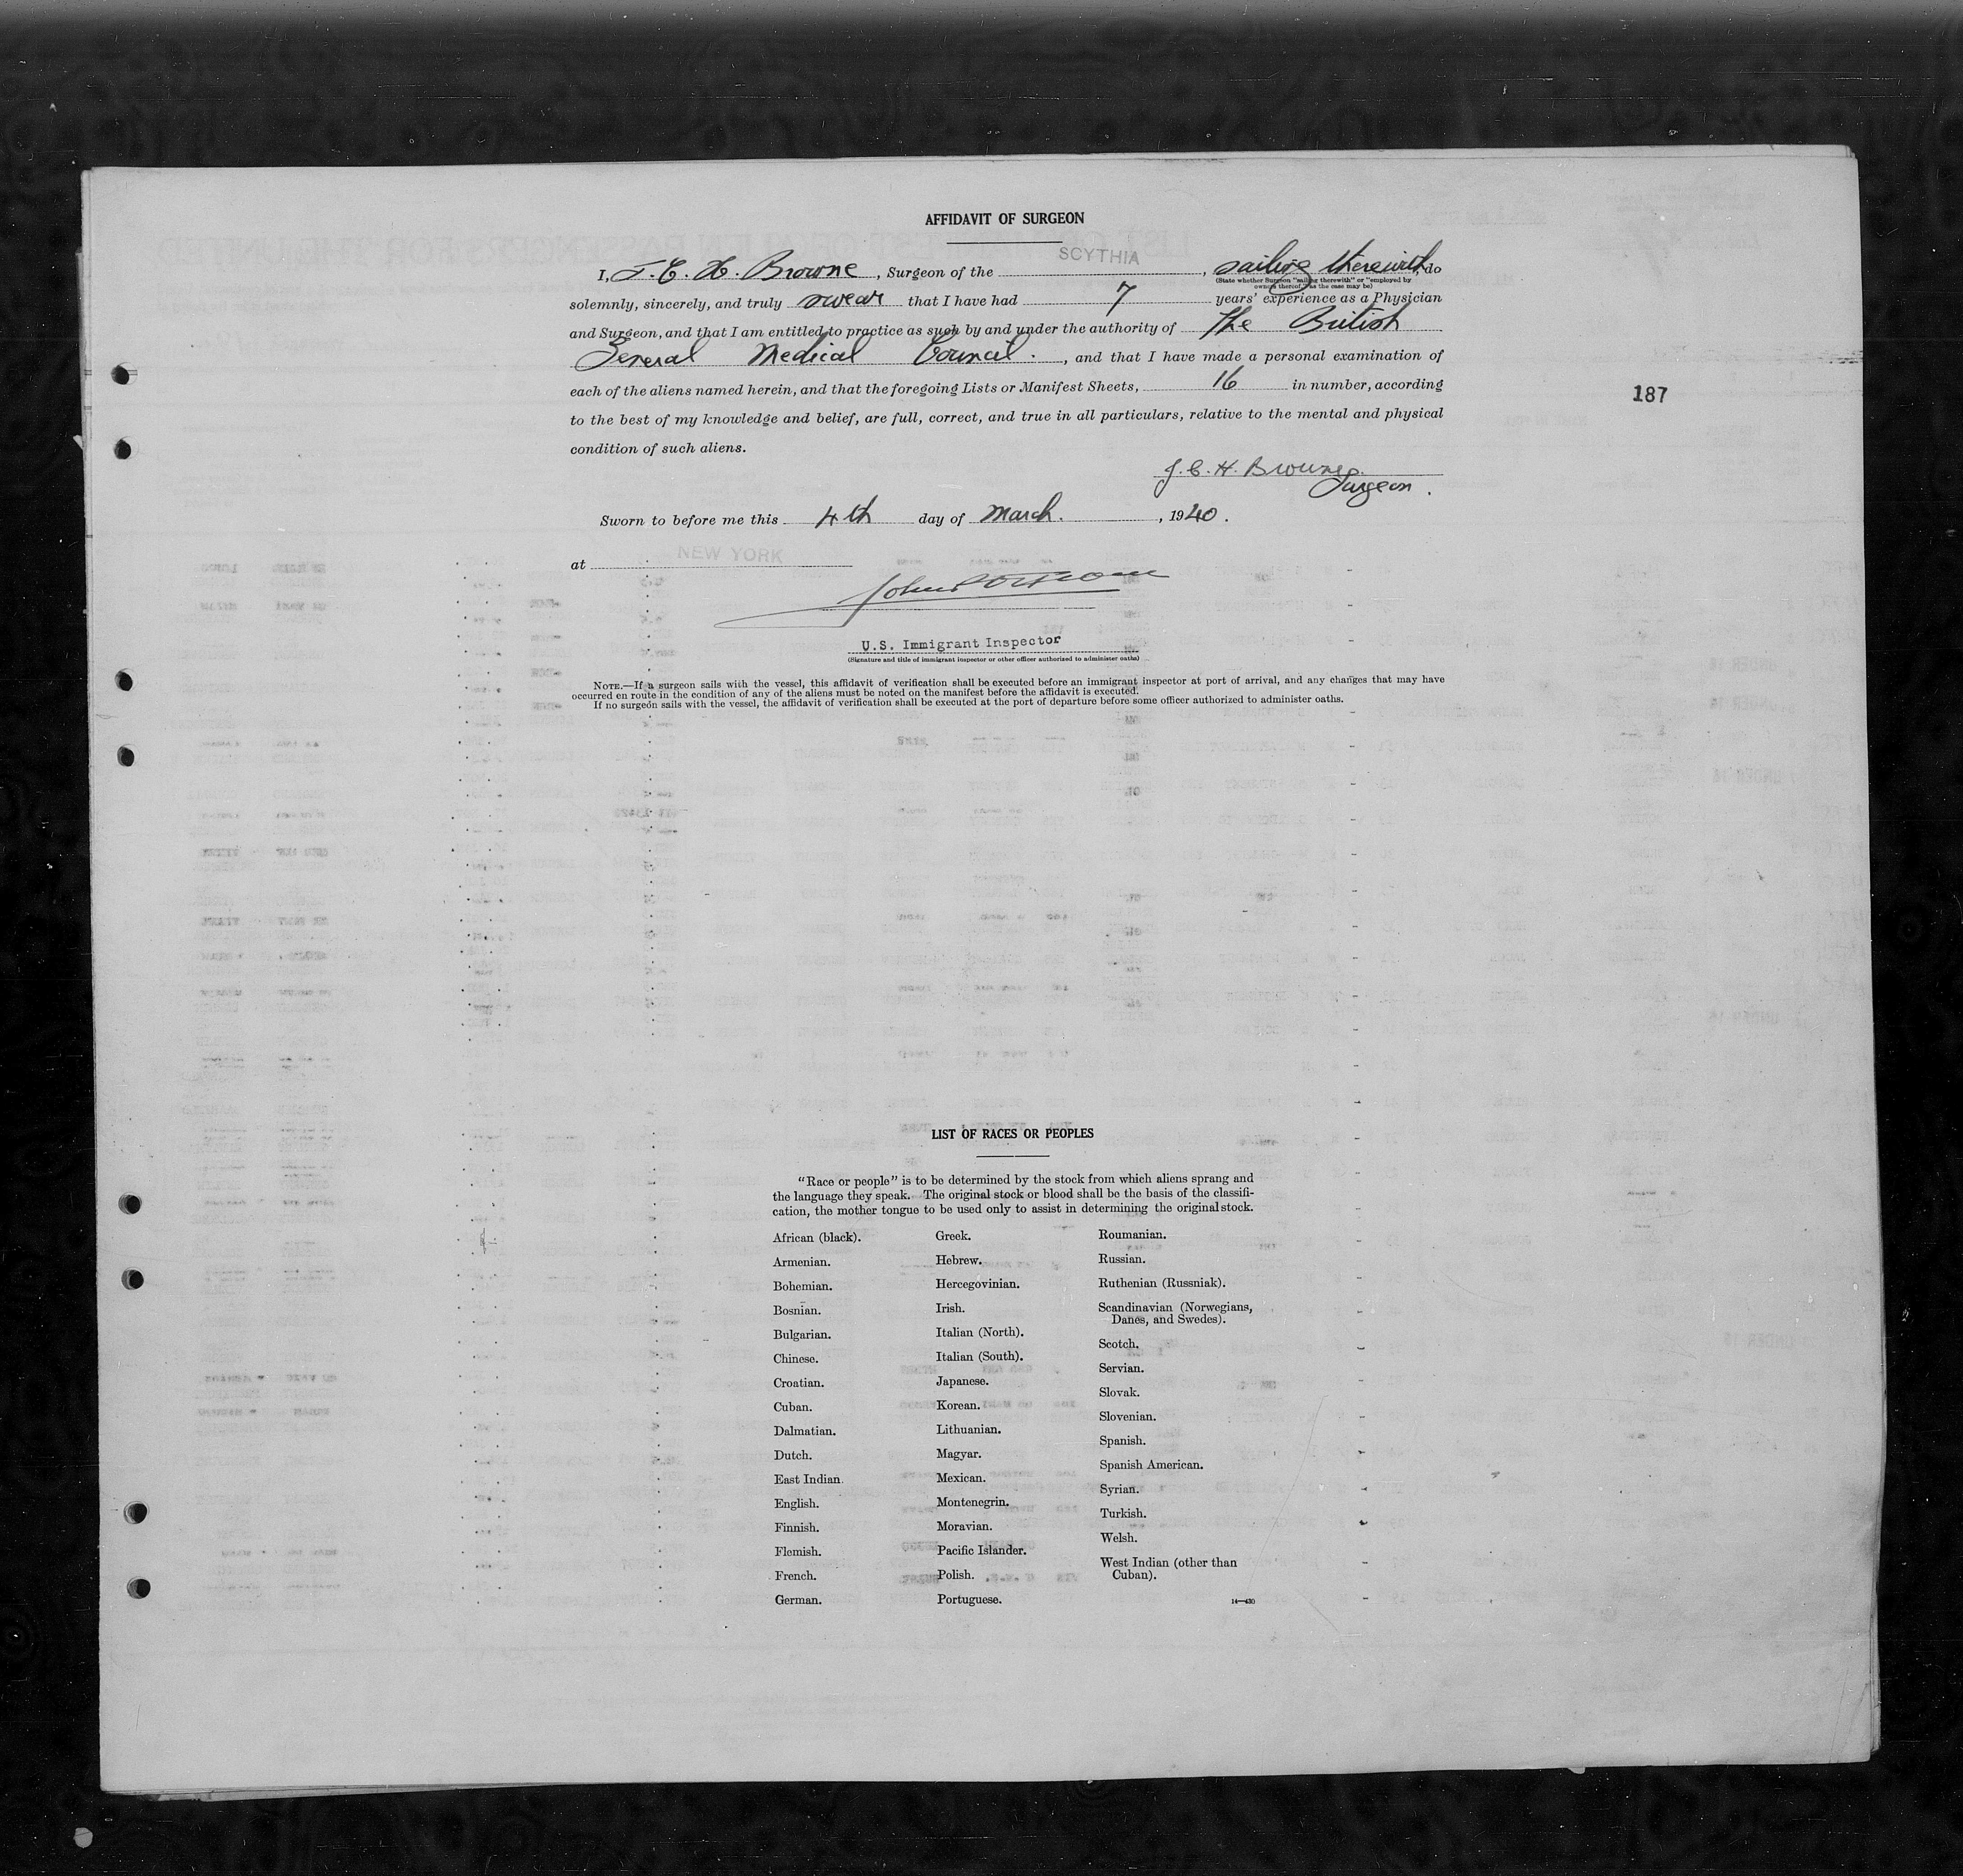 AFFIDAVIT OF SURGEON
I, J. C. H. Browne, Surgeon of the SCYTHIA, sailing therewith, do
(State whether Surgeon "sailing therewith" or "employed by
owners thereof," as the case may be)
solemnly, sincerely, and truly swear that I have had 7 years' experience as a Physician
and Surgeon, and that I am entitled to practice as such by and under the authority of The British
General Medical Council., and that I have made a personal examination of
each of the aliens named herein, and that the foregoing Lists or Manifest Sheets, 16 in number, according
to the best of my knowledge and belief, are full, correct, and true in all particulars, relative to the mental and physical
condition of such aliens.
187
J. C. H. Browne.
Surgeon.
Sworn to before me this 4th day of March., 1940.
at NEW YORK
John
U.S. Immigrant Inspector
(Signature and title of immigrant inspector or other officer authorized to administer oaths)
NOTE.—If a surgeon sails with the vessel, this affidavit of verification shall be executed before an immigrant inspector at port of arrival, and any changes that may have
occurred en route in the condition of any of the aliens must be noted on the manifest before the affidavit is executed.
If no surgeon sails with the vessel, the affidavit of verification shall be executed at the port of departure before some officer authorized to administer oaths.
LIST OF RACES OR PEOPLES
"Race or people" is to be determined by the stock from which aliens sprang and
the language they speak. The original stock or blood shall be the basis of the classifi-
cation, the mother tongue to be used only to assist in determining the original stock.
African (black).
Armenian.
Bohemian.
Bosnian.
Bulgarian.
Chinese.
Croatian.
Cuban.
Dalmatian.
Dutch.
East Indian.
English.
Finnish.
Flemish.
French.
German.
Greek.
Hebrew.
Hercegovinian.
Irish.
Italian (North).
Italian (South).
Japanese.
Korean.
Lithuanian.
Magyar.
Mexican.
Montenegrin.
Moravian.
Pacific Islander.
Polish.
Portuguese.
Roumanian.
Russian.
Ruthenian (Russniak).
Scandinavian (Norwegians,
Danes, and Swedes).
Scotch.
Servian.
Slovak.
Slovenian.
Spanish.
Spanish American.
Syrian.
Turkish.
Welsh.
West Indian (other than
Cuban).
14—430